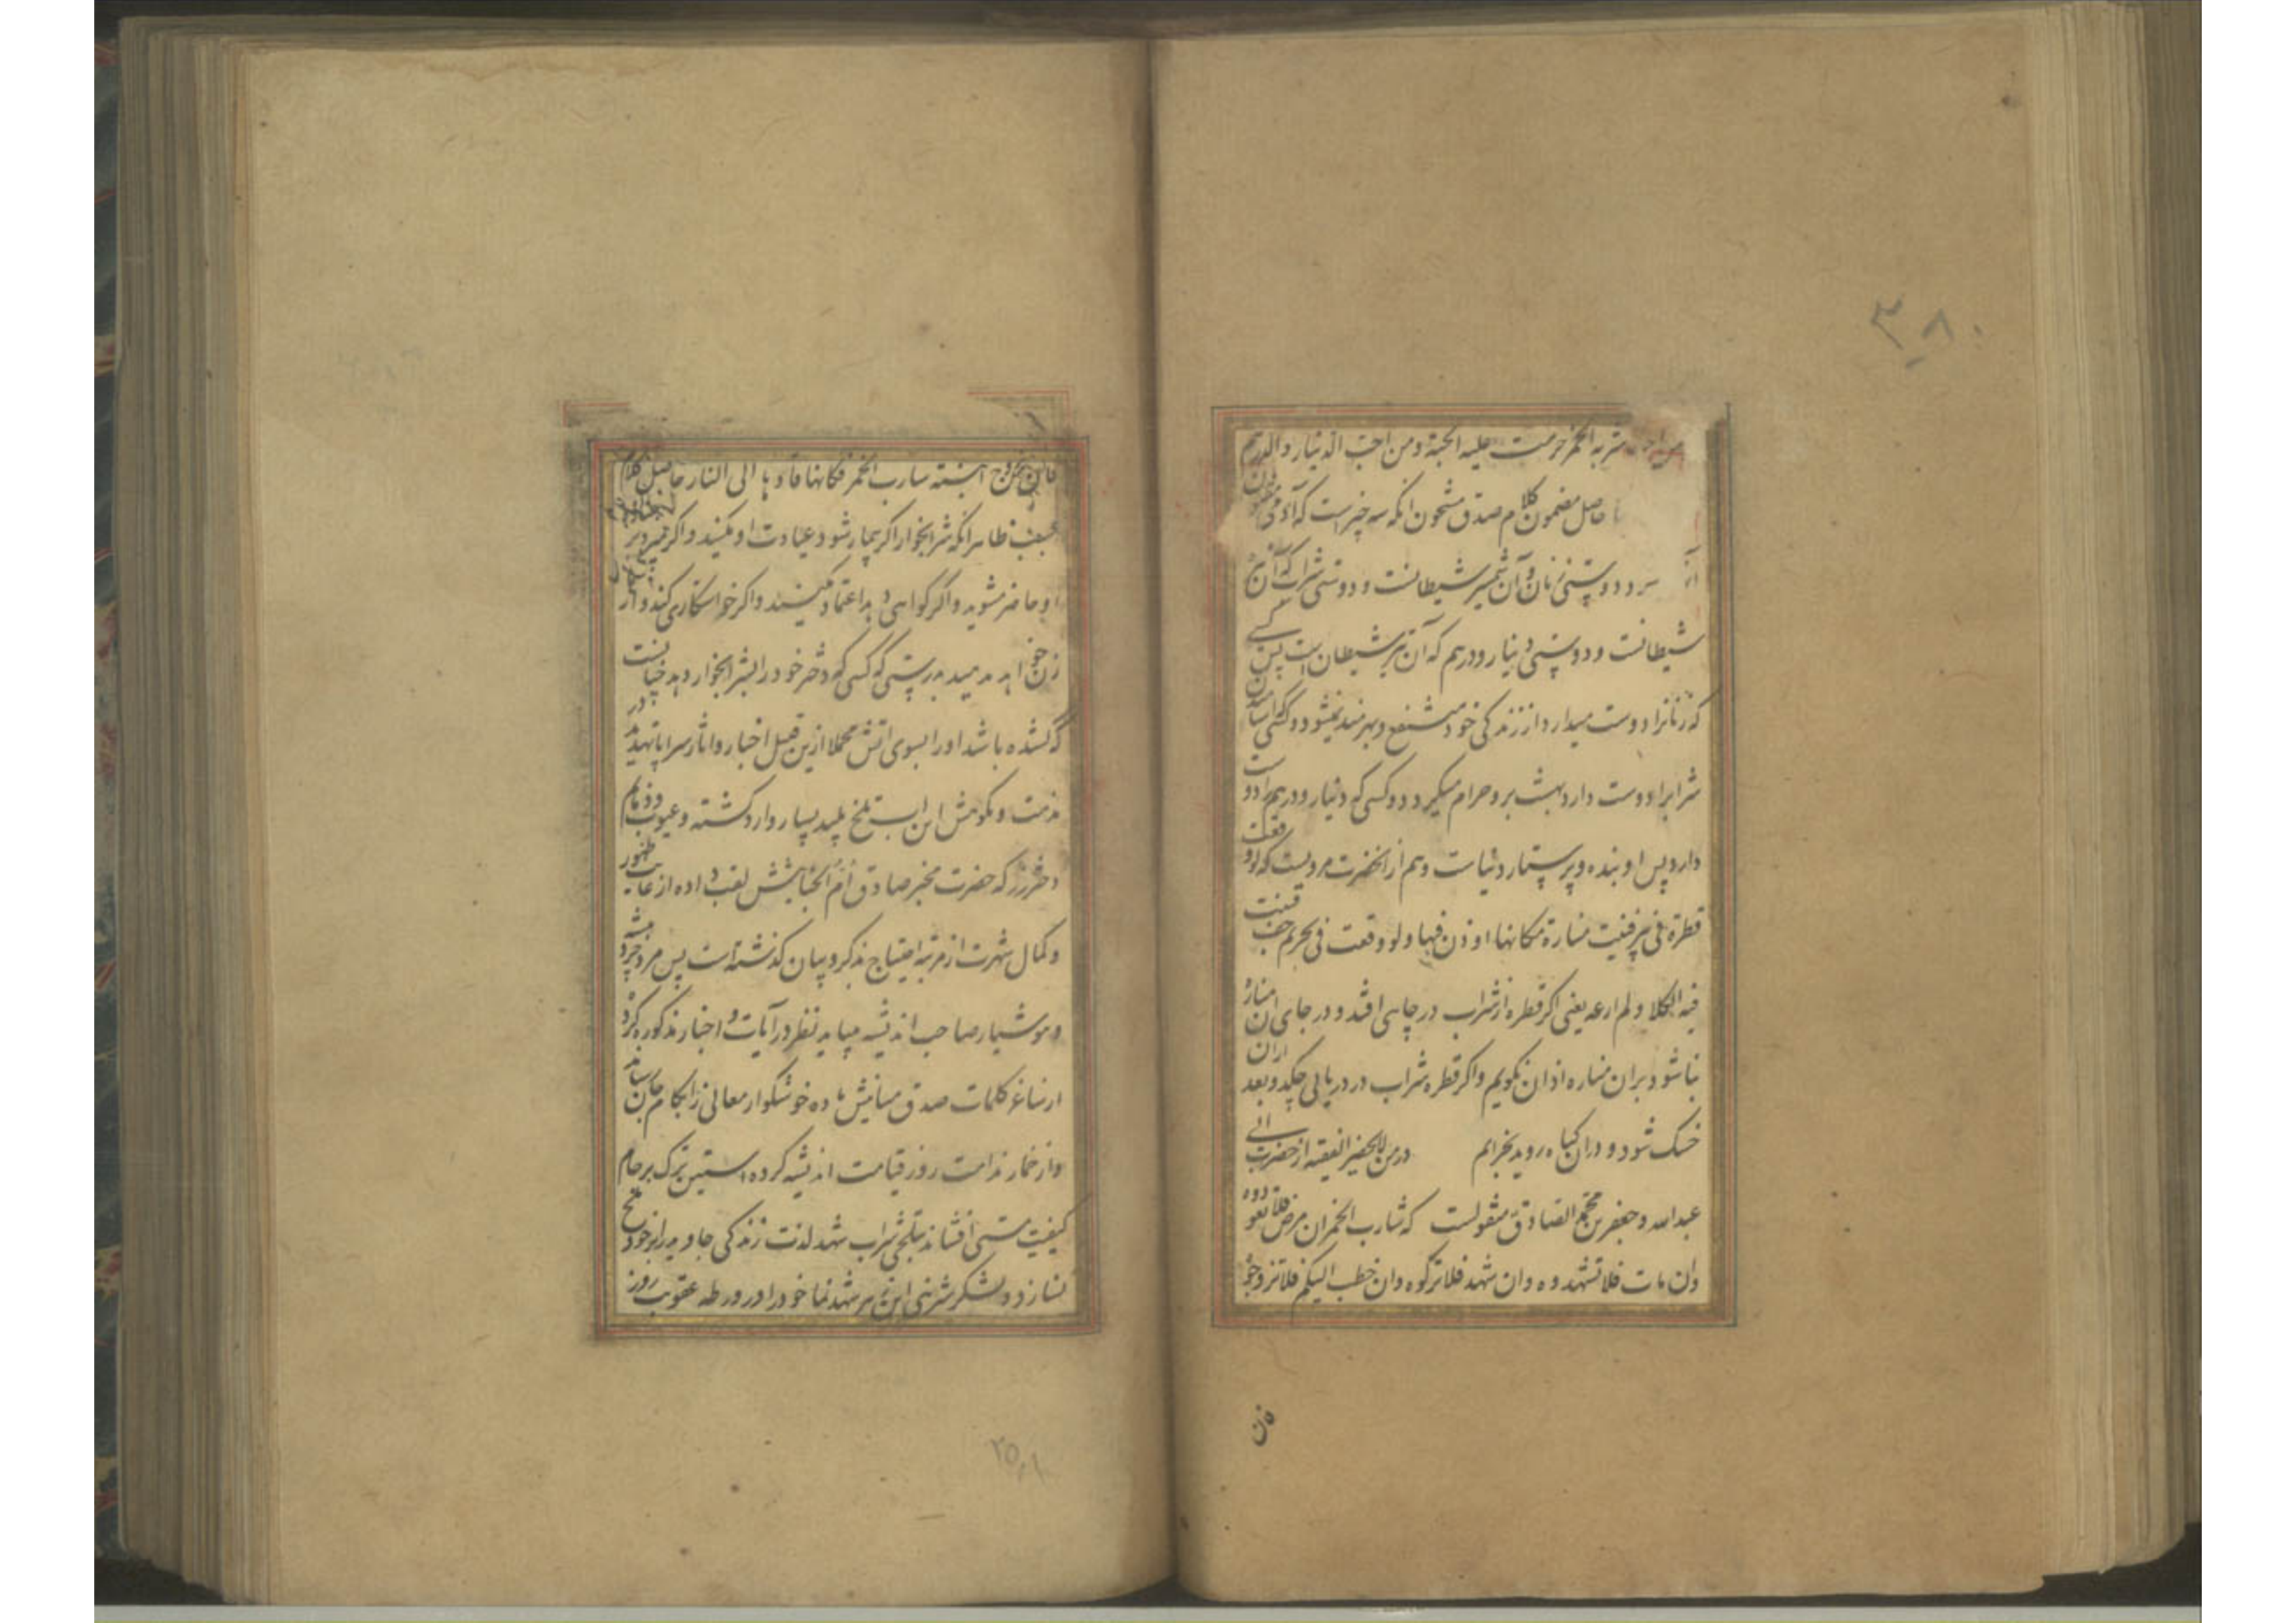 ۳۸۰
شربه الخمر حرمت علیه الجنة ومن احب الدینار والدرهم
حاصل مضمون کلام صدق مشحون انکه سه چیز است که آدمی
دوستی زنان و آن شمشیر شیطانست و دوستی شراب که آن
شیطانست و دوستی دینار و درهم که آن تیر شیطان است پس کسی
که زنانرا دوست میدارد از زندکی خود منتفع و بهرمند نمیشود و کسی
شرابرا دوست دارد بهشت برو حرام میکردد و کسی که دینار و درهم را دوست
دارد پس او بنده و پرستار دنیاست و هم از انحضرت مرویست که لو وقعت
قطرة فی بئر فبنیت منارة مکانها اوذن فیها ولو وقعت فی بحر ثم جف فنبت
فیه الکلا ولم ارعه یعنی اکر قطره از شراب در چاهی افتد و در جای ان مناره
بنا شود بران مناره اذان نکویم واکر قطره شراب در دریایی چکد و بعد ازان
خشک شود و دران کیاه روید نچرانم در من لایحضر الفقیه از حضرت ابی
عبدالله جعفر بن محمد الصادق منقولست که شارب الخمر ان مرض فلا تعودوه
وان مات فلا تشهدوه وان شهد فلا تزکوه وان خطب الیکم فلا تزوجوه
فان
ابنته شارب الخمر فکانها قادها الی النار حاصل کلام
ظاهر انکه شرابخوار اکر بیمار شود عیادت او مکنید واکر بمیرد بر
او حاضر مشوید واکر کواهی دهد اعتماد مکنید واکر خواستکاری کند و از
زن خواهد مدهید بدرستی که کسی که دختر خود را بشرابخوار دهد چنانست
که کشیده باشد او را بسوی اتش مجملا ازین قبیل اخبار واثار سراپا تهدید در
مذمت و نکوهش این اب تلخ پلید بسیار وارد کشته و عیوب و ذمایم
دختر رز که حضرت مخبر صادق ام الخبایثش لقب داده از غایت ظهور
و کمال شهرت از مرتبه احتیاج بذکر و بیان کذشته است پس مرد خرد پیشه
و هوشیار صاحب اندیشه میباید نظر در آیات و اخبار مذکوره کرده
از ساغر کلمات صدق باده خوشکوار معانی را بکام جان رساند
و از خمار ندامت روز قیامت اندیشه کرده استین ترک بر جام
کیفیت مستی افشاند بتلخی شراب شهد لذت زندکی جاوید را بر خود تلخ
نسازد و بشکر شیرینی این زهر شهد نما خود را در ورطه عقوبت روز
۲۵۰۸